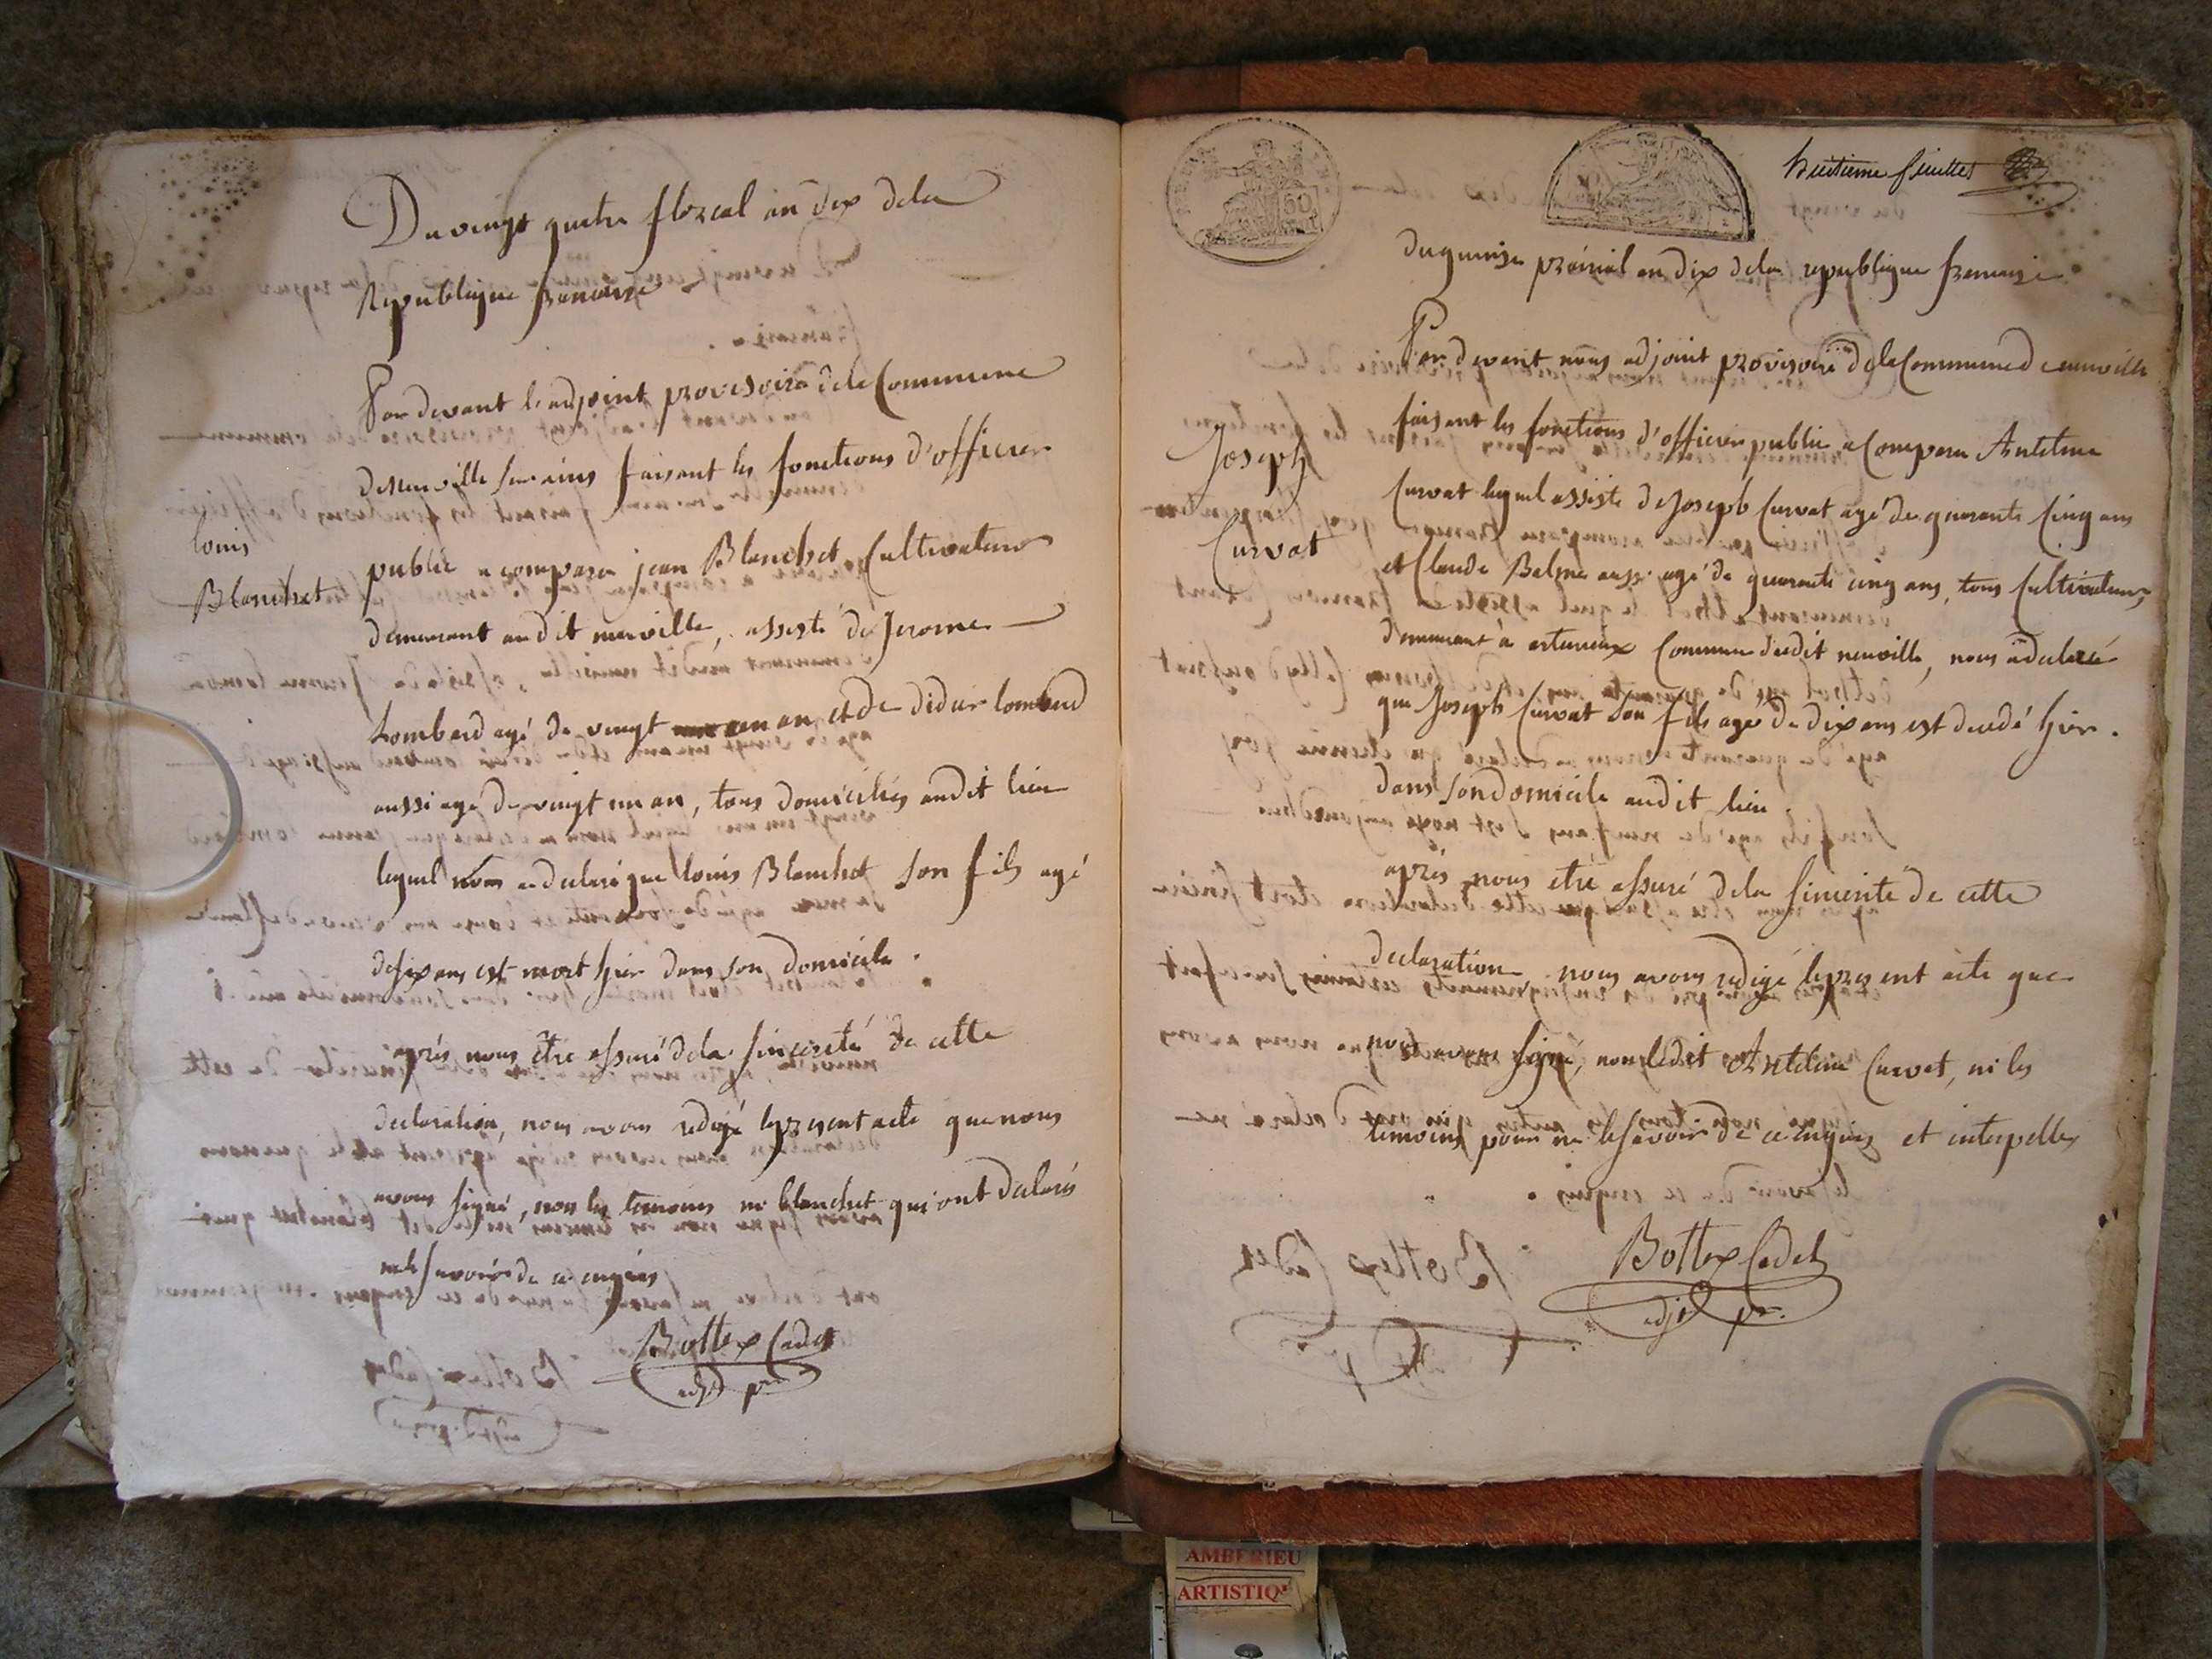 Du vingt quatre floreal an dix dela
Republique francaise
Par devant l'adjoint provisoire dela Commune
de neuville sur ains faisant les fonctions d'officier
louis
Blanchet
public a comparu jean Blanchet Cultivateur
demeurant audit neuville, assisté de Jerome
Lombard agé de vingt un an et de didier lombard
aussi agé de vingt un an, tous domiciliés audit lieu
lequel nous a declaré que louis Blanchet son fils agé
de six ans est mort hier dans son domicile.
après nous être assuré dela sincerité de cette
declaration, nous avons redigé le present acte que nous
avons signé, non les temoins ni blanchet qui ont declarés
ne le savoir de ce enquis
Bottex Cadet
adjt pre
huitieme feuillet
50
du quinze prairial an dix dela republique francaise
Par devant nous adjoint provisoire dela Commune de neuville
faisant les fonctions d'officier public a Comparu Antelme
Joseph
Curvat
Curvat lequel assisté de Joseph Curvat agé de quarante Cinq ans
et Claude Balme aussi agé de quarante cinq ans, tous Cultivateurs
demeurant à Commune dudit neuville, nous a declaré
que Joseph Curvat son fils agé de dix ans est decedé hier.
dans son domicile audit lieu.
après nous etre assuré dela sincerité de cette
declaration nous avons redigé le present acte que
nous avons signé, non ledit Antelme Curvat, ni les
temoins pour ne le savoir de ce enquis et interpellés
Bottex Cadet
adjt pr.
AMBERIEU
ARTISTIQ